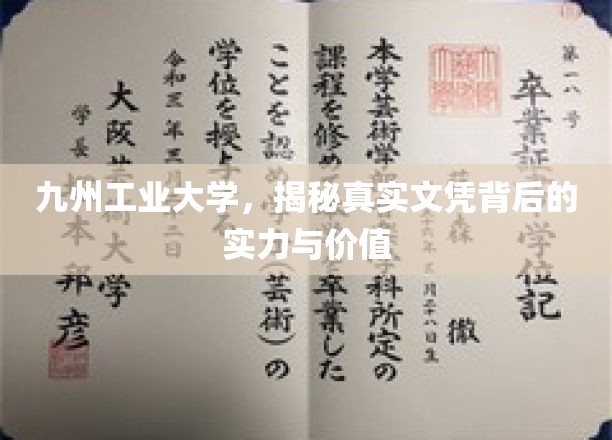 九州工业大学，揭秘真实文凭背后的
实力与价值
第一八号
卒業証 学位記
森 徹
六年三月二十八日生
本学芸術学 学科所定の
課程を修め 卒業した
ことを認め (芸術)の
学位を授与する
令和三年三月 二日
大阪芸術大学
学長 本邦彦